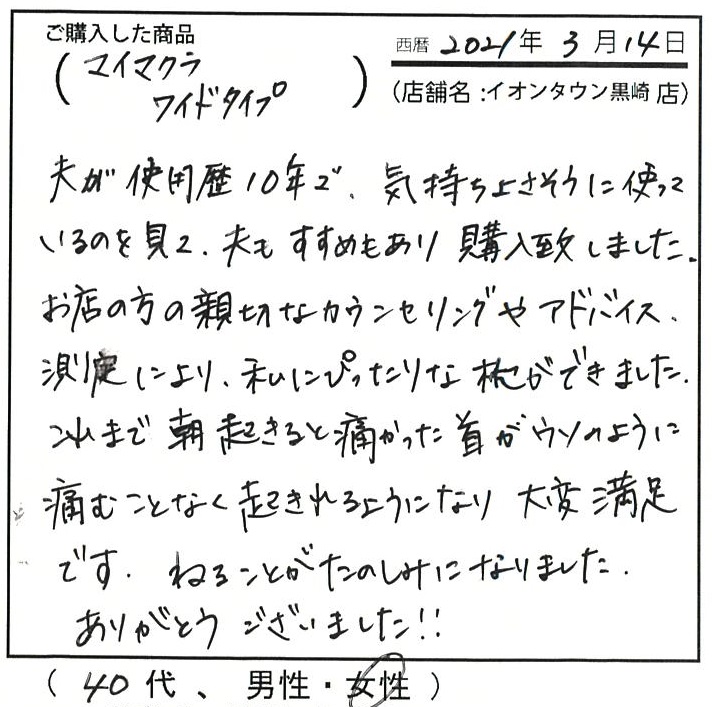 ご購入した商品
(マイマクラ
ワイドタイプ)
西暦 2021年 3月14日
(店舗名:イオンタウン黒崎 店)
夫が使用歴10年で、気持ちよさそうに使って
いるのを見て、夫もすすめもあり購入致しました。
お店の方の親切なカウンセリングやアドバイス、
測定により、私にぴったりな枕ができました。
これまで朝起きると痛かった首がウソのように
痛むことなく起きれるようになり大変満足
です。ねることがたのしみになりました。
ありがとうございました!!
(40代、男性・女性)